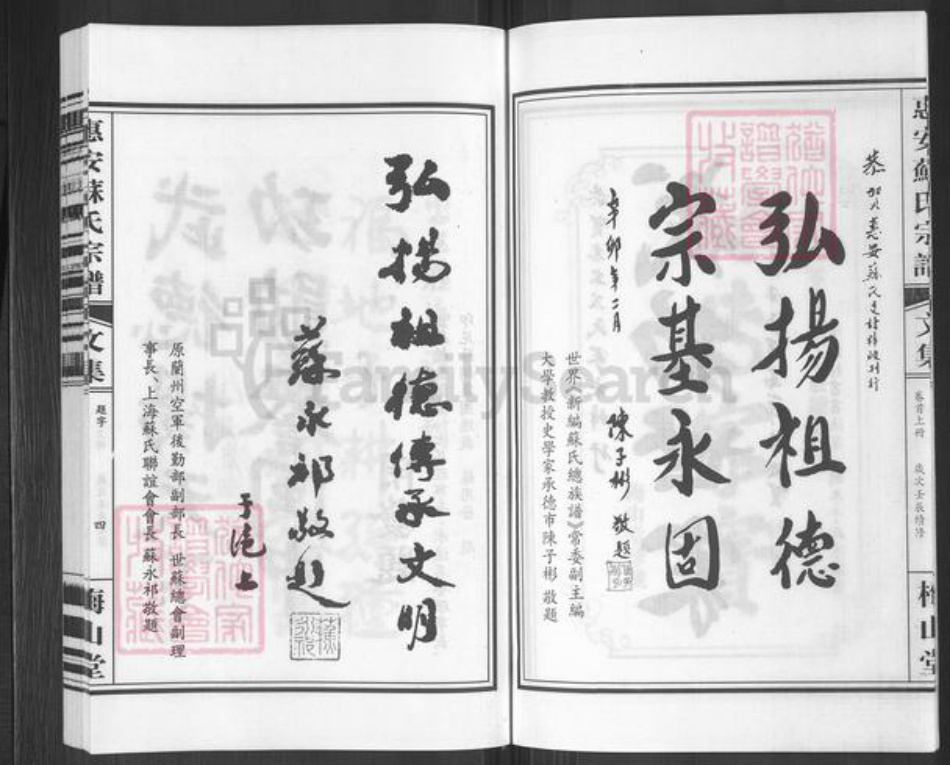 惠安蘇氏宗譜
文集
卷首上册
歲次壬辰
梅山堂
恭賀惠安蘇氏
弘揚祖德
宗基永固
辛卯年二月
陳子彬 敬題
世界《新編蘇氏總族譜》常委副主編
大學教授史學家承德市陳子彬 敬題
弘揚祖德傳承文明
蘇永祁敬題
于滬上
原蘭州空軍後勤部副部長 世蘇總會副理
事長、上海蘇氏聯誼會會長 蘇永祁敬題
惠安蘇氏宗譜
文集
題字
四
梅山堂
FamilySearch